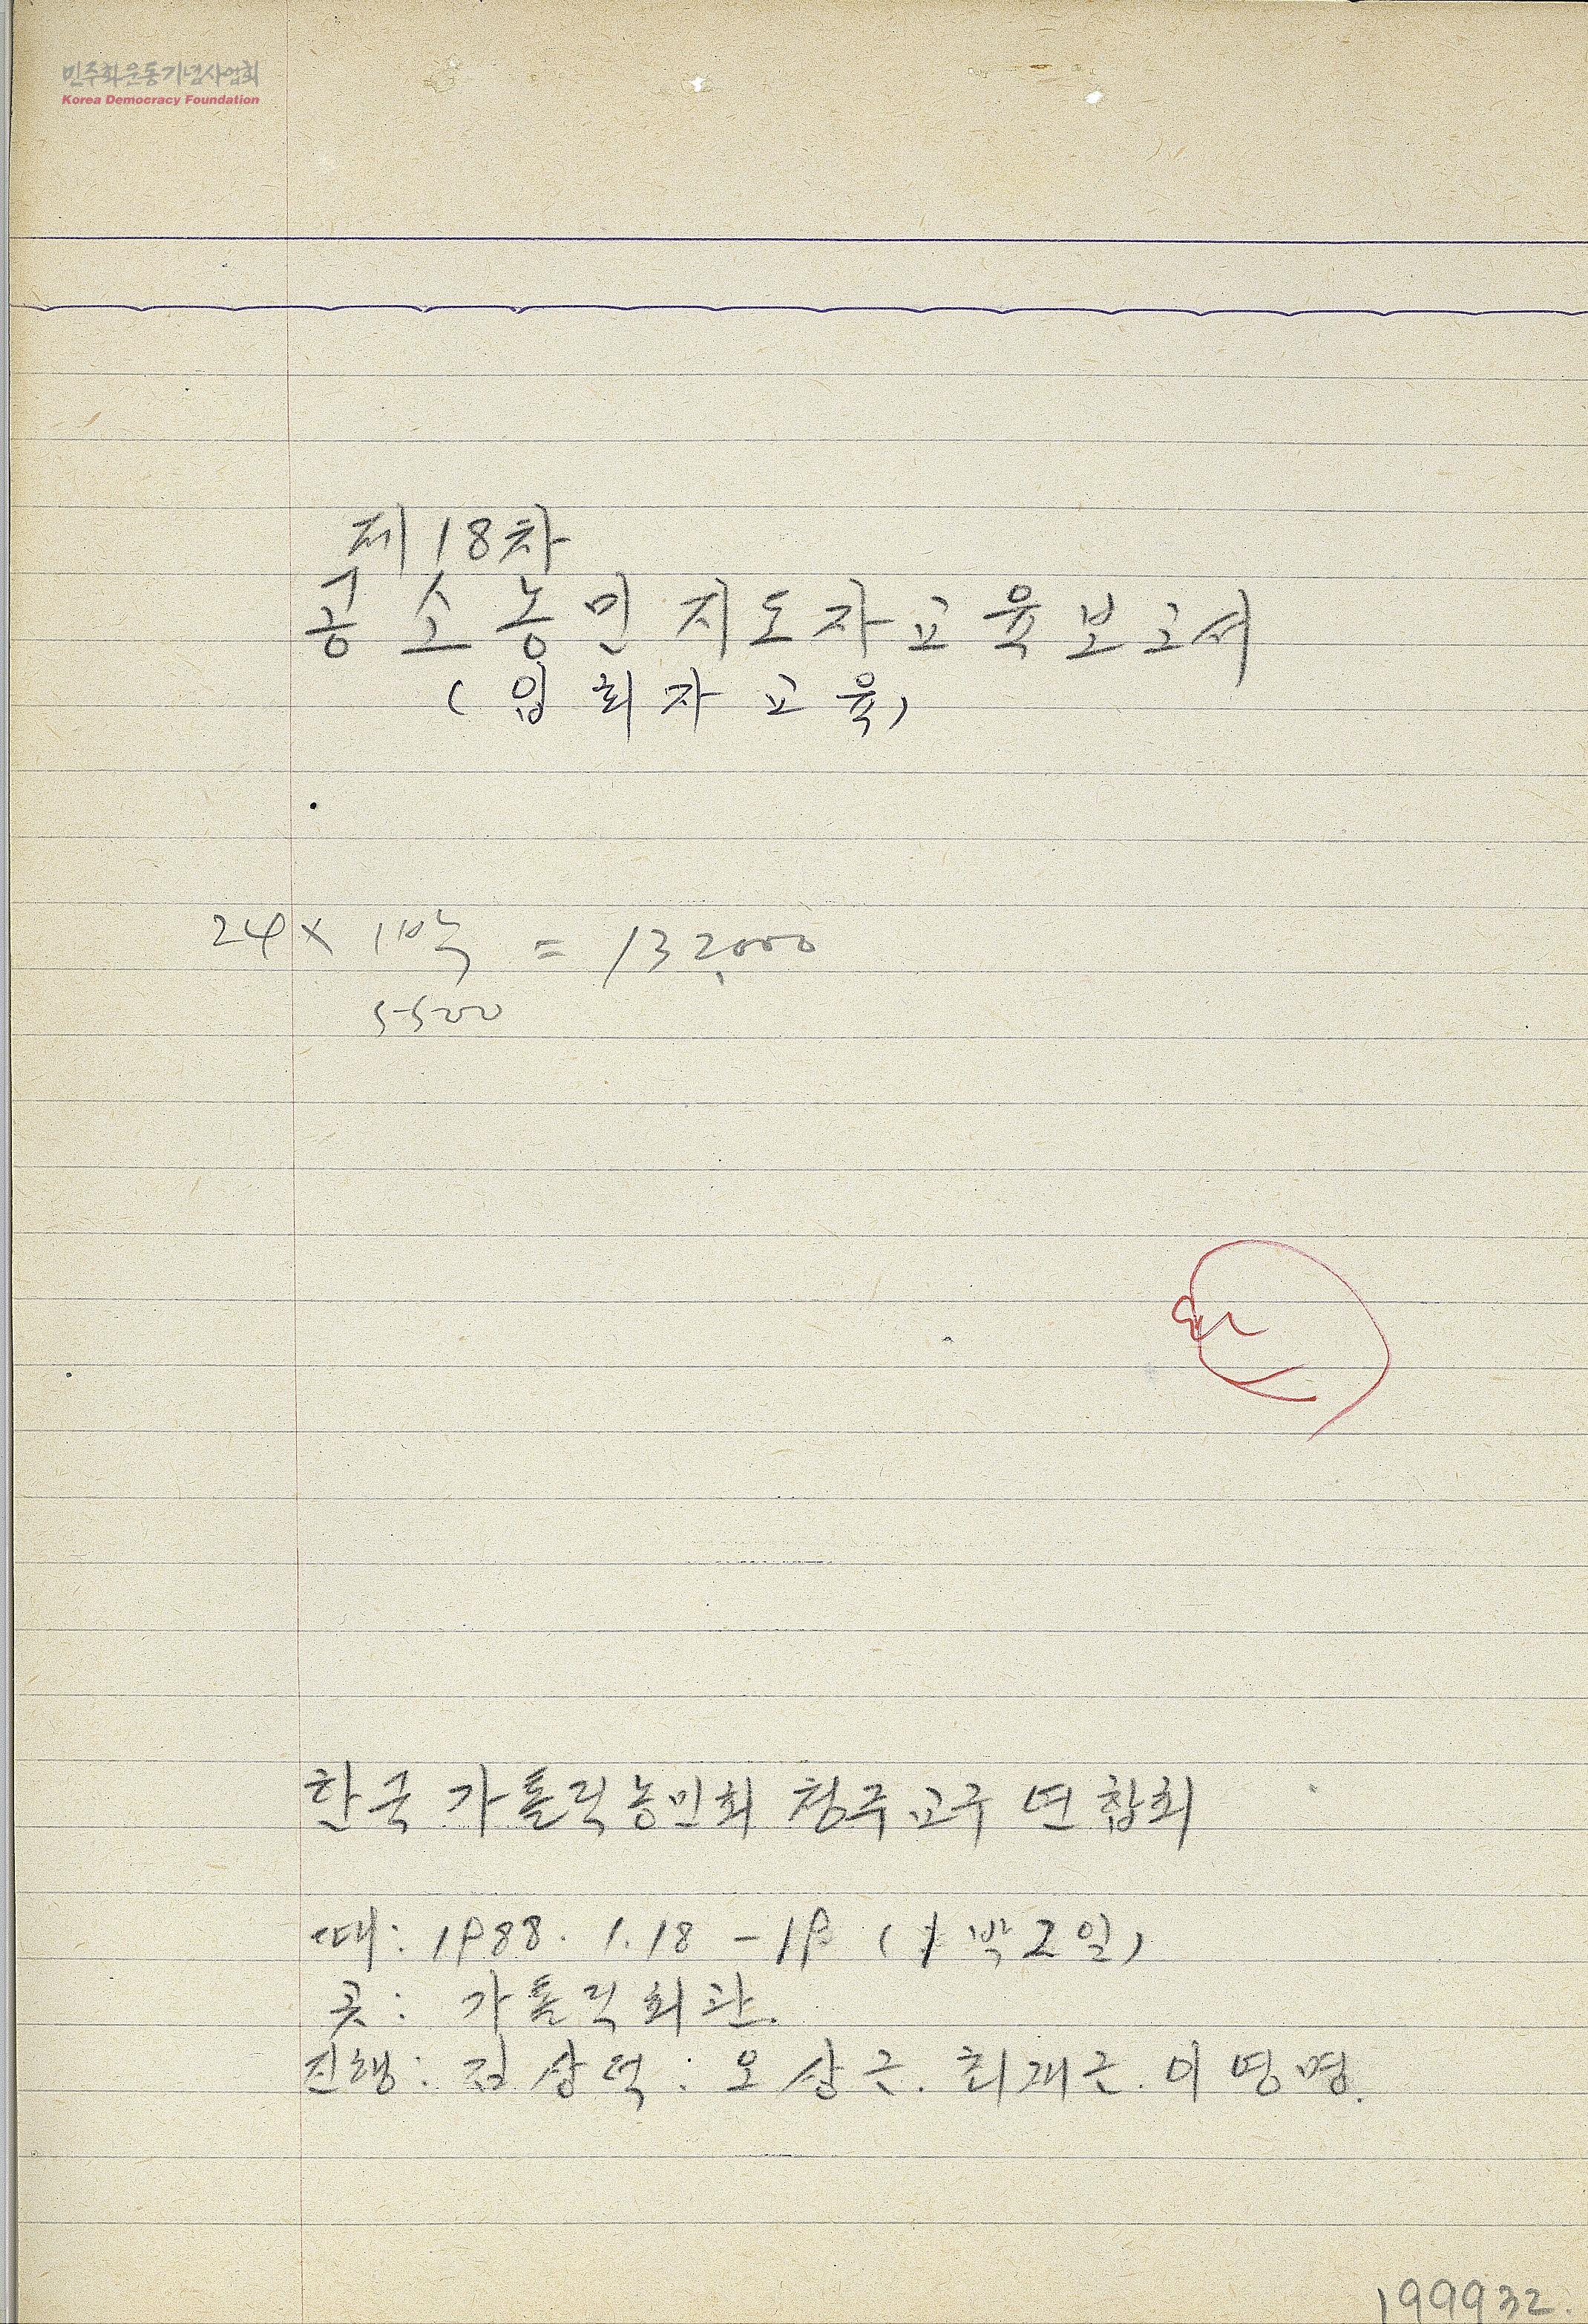 민주화운동기념사업회
Korea Democracy Foundation
제18차
공소농민지도자교육보고서
(입회자교육)
24 × = 132,000
5500
한국가톨릭농민회 청주교구연합회
때: 1988. 1. 18 - 19 (1박2일)
곳: 가톨릭회관.
진행: 김상덕: 오상근. 최재근. 이명명.
199932.